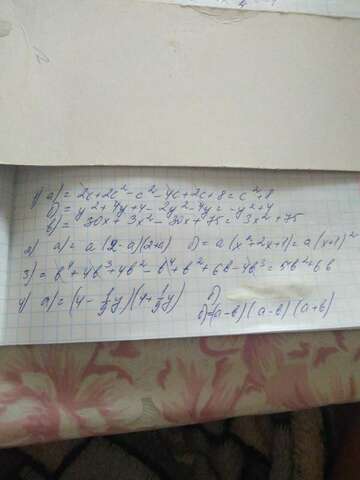 1) а) = 2c+2c²-c²-4c+2c+8=c²+8
б) = y²+4y+4-2y²-4y=-y²+4
в) = 30x+3x²-30x+75=3x²+75
2) а) = a(2-a)(2+a) б) = a(x²+2x+1)=a(x+1)²
3) = b⁴+4b³+4b²-b⁴+b²+6b-4b³=5b²+6b
4) а) = (4-1/9y)(4+1/9y) б)
б) = (a-b)(a-b)(a+b)